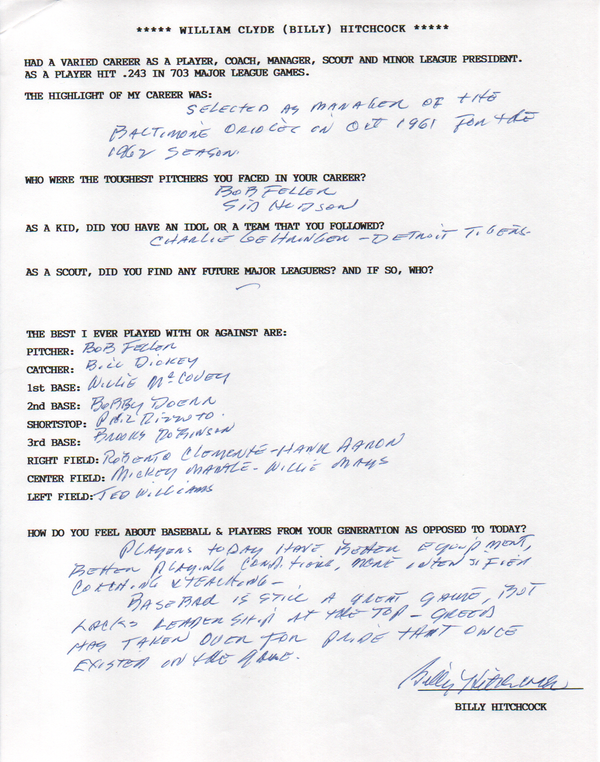 ***** WILLIAM CLYDE (BILLY) HITCHCOCK *****
HAD A VARIED CAREER AS A PLAYER, COACH, MANAGER, SCOUT AND MINOR LEAGUE PRESIDENT.
AS A PLAYER HIT .243 IN 703 MAJOR LEAGUE GAMES.
THE HIGHLIGHT OF MY CAREER WAS:
SELECTED AS MANAGER OF THE
BALTIMORE ORIOLES IN OCT 1961 FOR THE
1962 SEASON.
WHO WERE THE TOUGHEST PITCHERS YOU FACED IN YOUR CAREER?
BOB FELLER
SID HUDSON
AS A KID, DID YOU HAVE AN IDOL OR A TEAM THAT YOU FOLLOWED?
CHARLIE GEHRINGER - DETROIT TIGERS-
AS A SCOUT, DID YOU FIND ANY FUTURE MAJOR LEAGUERS? AND IF SO, WHO?
THE BEST I EVER PLAYED WITH OR AGAINST ARE:
PITCHER: BOB FELLER
CATCHER: BILL DICKEY
1st BASE: WILLIE McCOVEY
2nd BASE: BOBBY DOERR
SHORTSTOP: PHIL RIZZUTO.
3rd BASE: BROOKS ROBINSON
RIGHT FIELD: ROBERTO CLEMENTE-HANK AARON
CENTER FIELD: MICKEY MANTLE- WILLIE MAYS
LEFT FIELD: TED WILLIAMS
HOW DO YOU FEEL ABOUT BASEBALL & PLAYERS FROM YOUR GENERATION AS OPPOSED TO TODAY?
PLAYERS TODAY HAVE BETTER EQUIPMENT,
BETTER PLAYING CONDITIONS, MORE INTENSIFIED
COACHING & TEACHING-
BASEBALL IS STILL A GREAT GAME, BUT
LACKS LEADERSHIP AT THE TOP - GREED
HAS TAKEN OVER FOR PRIDE THAT ONCE
EXISTED IN THE GAME.
Billy Hitchcock
BILLY HITCHCOCK